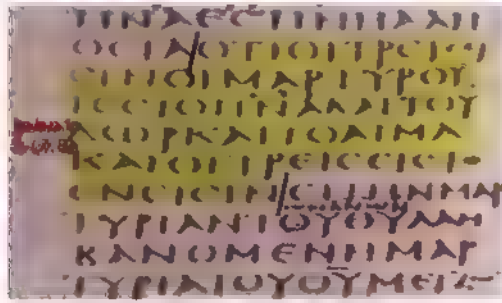 ΘΕΙΑ ΟΤΙΟΙΤΡΕΙCΕΙ
CΙΝΟΙΜΑΡΤΥΡΟΥ
ΤΕCΤΟΠΝΑΚΑΙΤΟΥ
ΔΩΡΚΑΙΤΟΑΙΜΑ
ΚΑΙΟΙΤΡΕΙCΕΙCΤΟ
ΕΝΕΙCΙΝ ΕΙΤΗΝΜΑΡ
ΤΥΡΙΑΝΤΟΥΘΥΛΑΜ
ΒΑΝΟΜΕΝΗΜΑΡ
ΤΥΡΙΑΤΟΥΘΥΜΕΙΖΩ